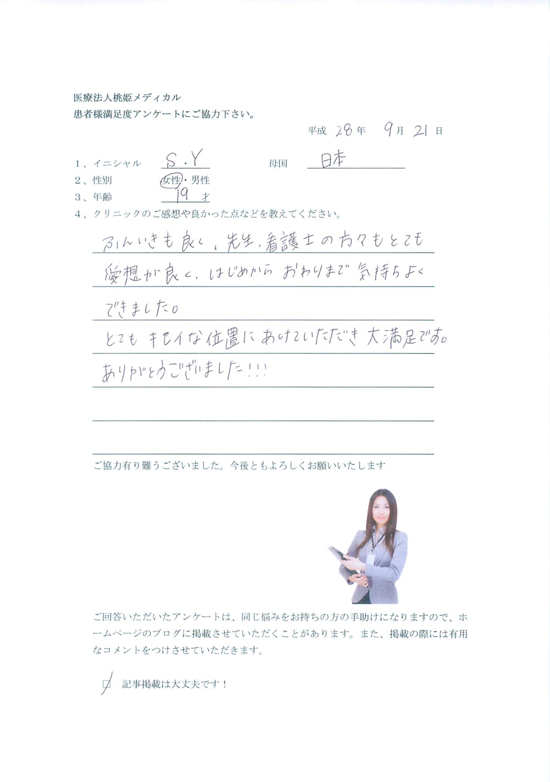 医療法人桃姫メディカル
患者様満足度アンケートにご協力下さい。
平成 28 年 9 月 21 日
1、イニシャル S.Y 母国 日本
2、性別 女性・男性
3、年齢 19 才
4、クリニックのご感想や良かった点などを教えてください。
ふんいきも良く、先生、看護士の方々もとても
愛想が良く、はじめから おわりまで 気持ちよく
できました。
とても キレイな位置に あけていただき 大満足です。
ありがとうございました!!!
ご協力有り難うございました。今後ともよろしくお願いいたします
ご回答いただいたアンケートは、同じ悩みをお持ちの方の手助けになりますので、ホ
ームページのブログに掲載させていただくことがあります。また、掲載の際には有用
なコメントをつけさせていただきます。
□ 記事掲載は大丈夫です!